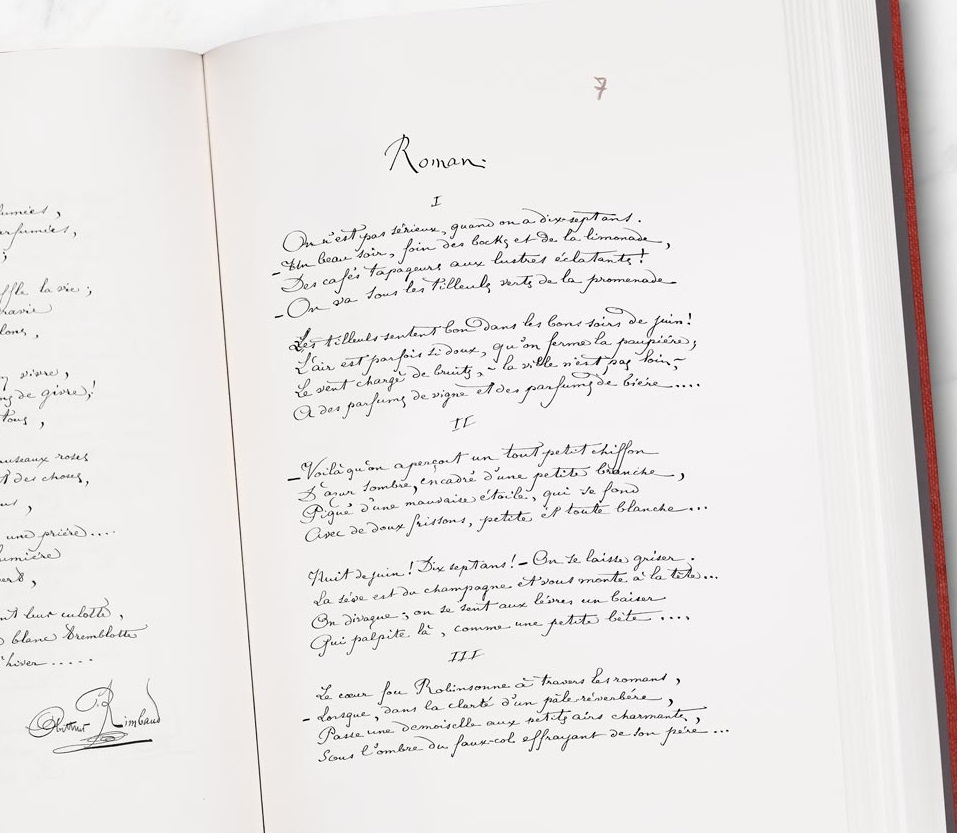 fumées,
arfumées,
;
ffle la vie ;
ravie
lons,
vivre,
de givre,!
tous,
museaux roses
des choses,
,
une prière....
lumière
,
nt leur culotte,
blanc tremblotte
hiver .....
Arthur Rimbaud
7
Roman.
I
On n'est pas sérieux, quand on a dix-sept ans.
— Un beau soir, foin des bocks et de la limonade,
Des cafés tapageurs aux lustres éclatants !
— On va sous les tilleuls verts de la promenade
Les tilleuls sentent bon dans les bons soirs de juin !
L'air est parfois si doux, qu'on ferme la paupière ;
Le vent chargé de bruits, — la ville n'est pas loin, —
A des parfums de vigne et des parfums de bière....
II
— Voilà qu'on aperçoit un tout petit chiffon
D'azur sombre, encadré d'une petite branche,
Piqué d'une mauvaise étoile, qui se fond
Avec de doux frissons, petite et toute blanche...
Nuit de juin ! Dix sept ans ! — On se laisse griser.
La sève est du champagne et vous monte à la tête...
On divague ; on se sent aux lèvres un baiser
Qui palpite là, comme une petite bête....
III
Le cœur fou Robinsonne à travers les romans,
— Lorsque, dans la clarté d'un pâle réverbère,
Passe une demoiselle aux petits airs charmants,
Sous l'ombre du faux-col effrayant de son père...